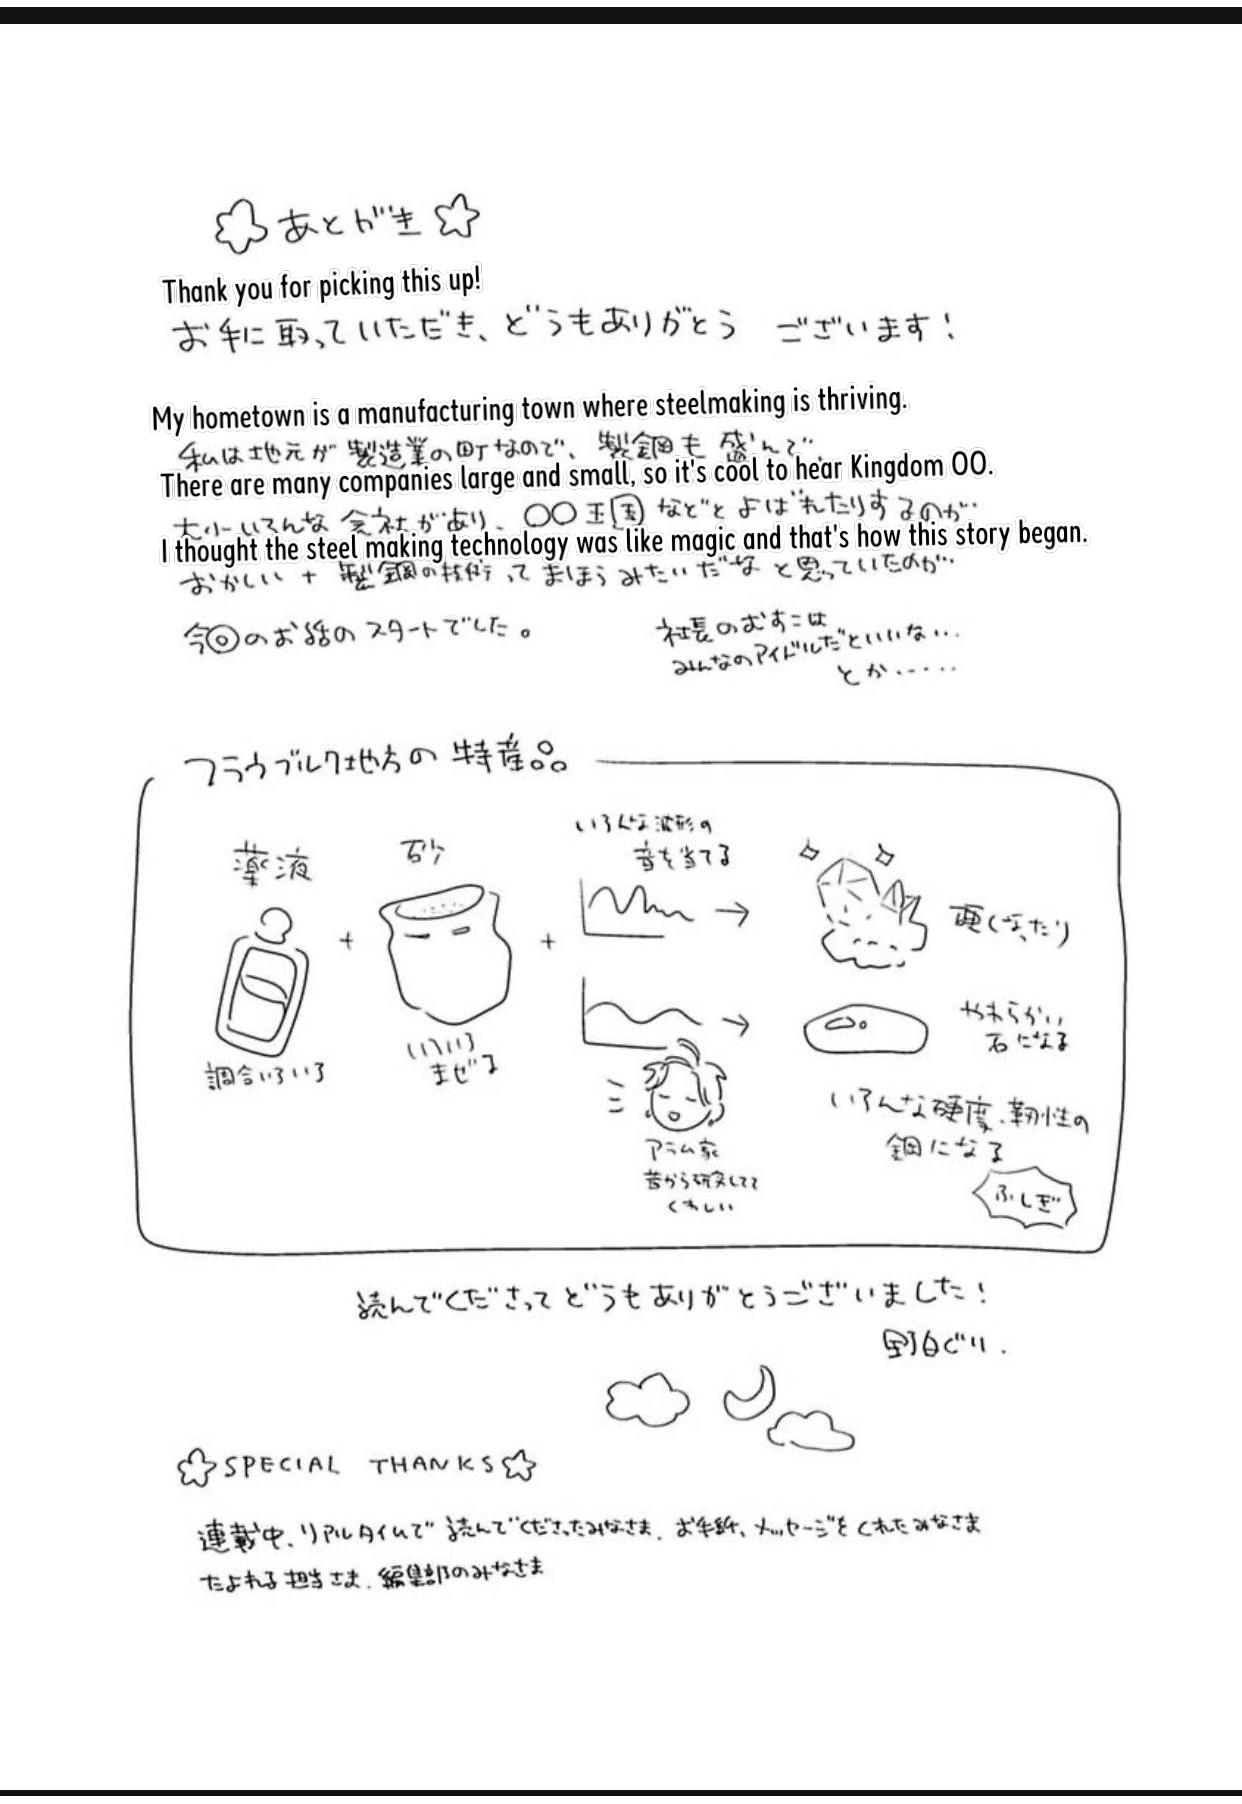 あとがき
Thank you for picking this up!
お手に取っていただき、どうもありがとう ございます!
My hometown is a manufacturing town where steelmaking is thriving.
私は地元が製造業の町なので、製鋼も盛んで、
There are many companies large and small, so it's cool to hear Kingdom OO.
大小いろんな会社があり、〇〇王国などとよばれたりするのが…
I thought the steel making technology was like magic and that's how this story began.
おかしい + 製鋼の技術ってまほうみたいだなと思っていたのが…
今回のお話のスタートでした。
社長のむすこは
みんなのアイドルだといいな…
とか……
フラウブルク地方の特産品
薬液
調合いろいろ
+
砂
いろいろ
まぜる
+
いろんな波形の
音を当てる
→
硬くなったり
→
やわらかい
石になる
アラム家
昔から研究してて
くわしい
いろんな硬度、靭性の
鋼になる
ふしぎ
読んでくださってどうもありがとうございました!
野白ぐり.
SPECIAL THANKS
連載中、リアルタイムで読んでくださったみなさま、お手紙、メッセージをくれたみなさま
たよれる担当さま、編集部のみなさま